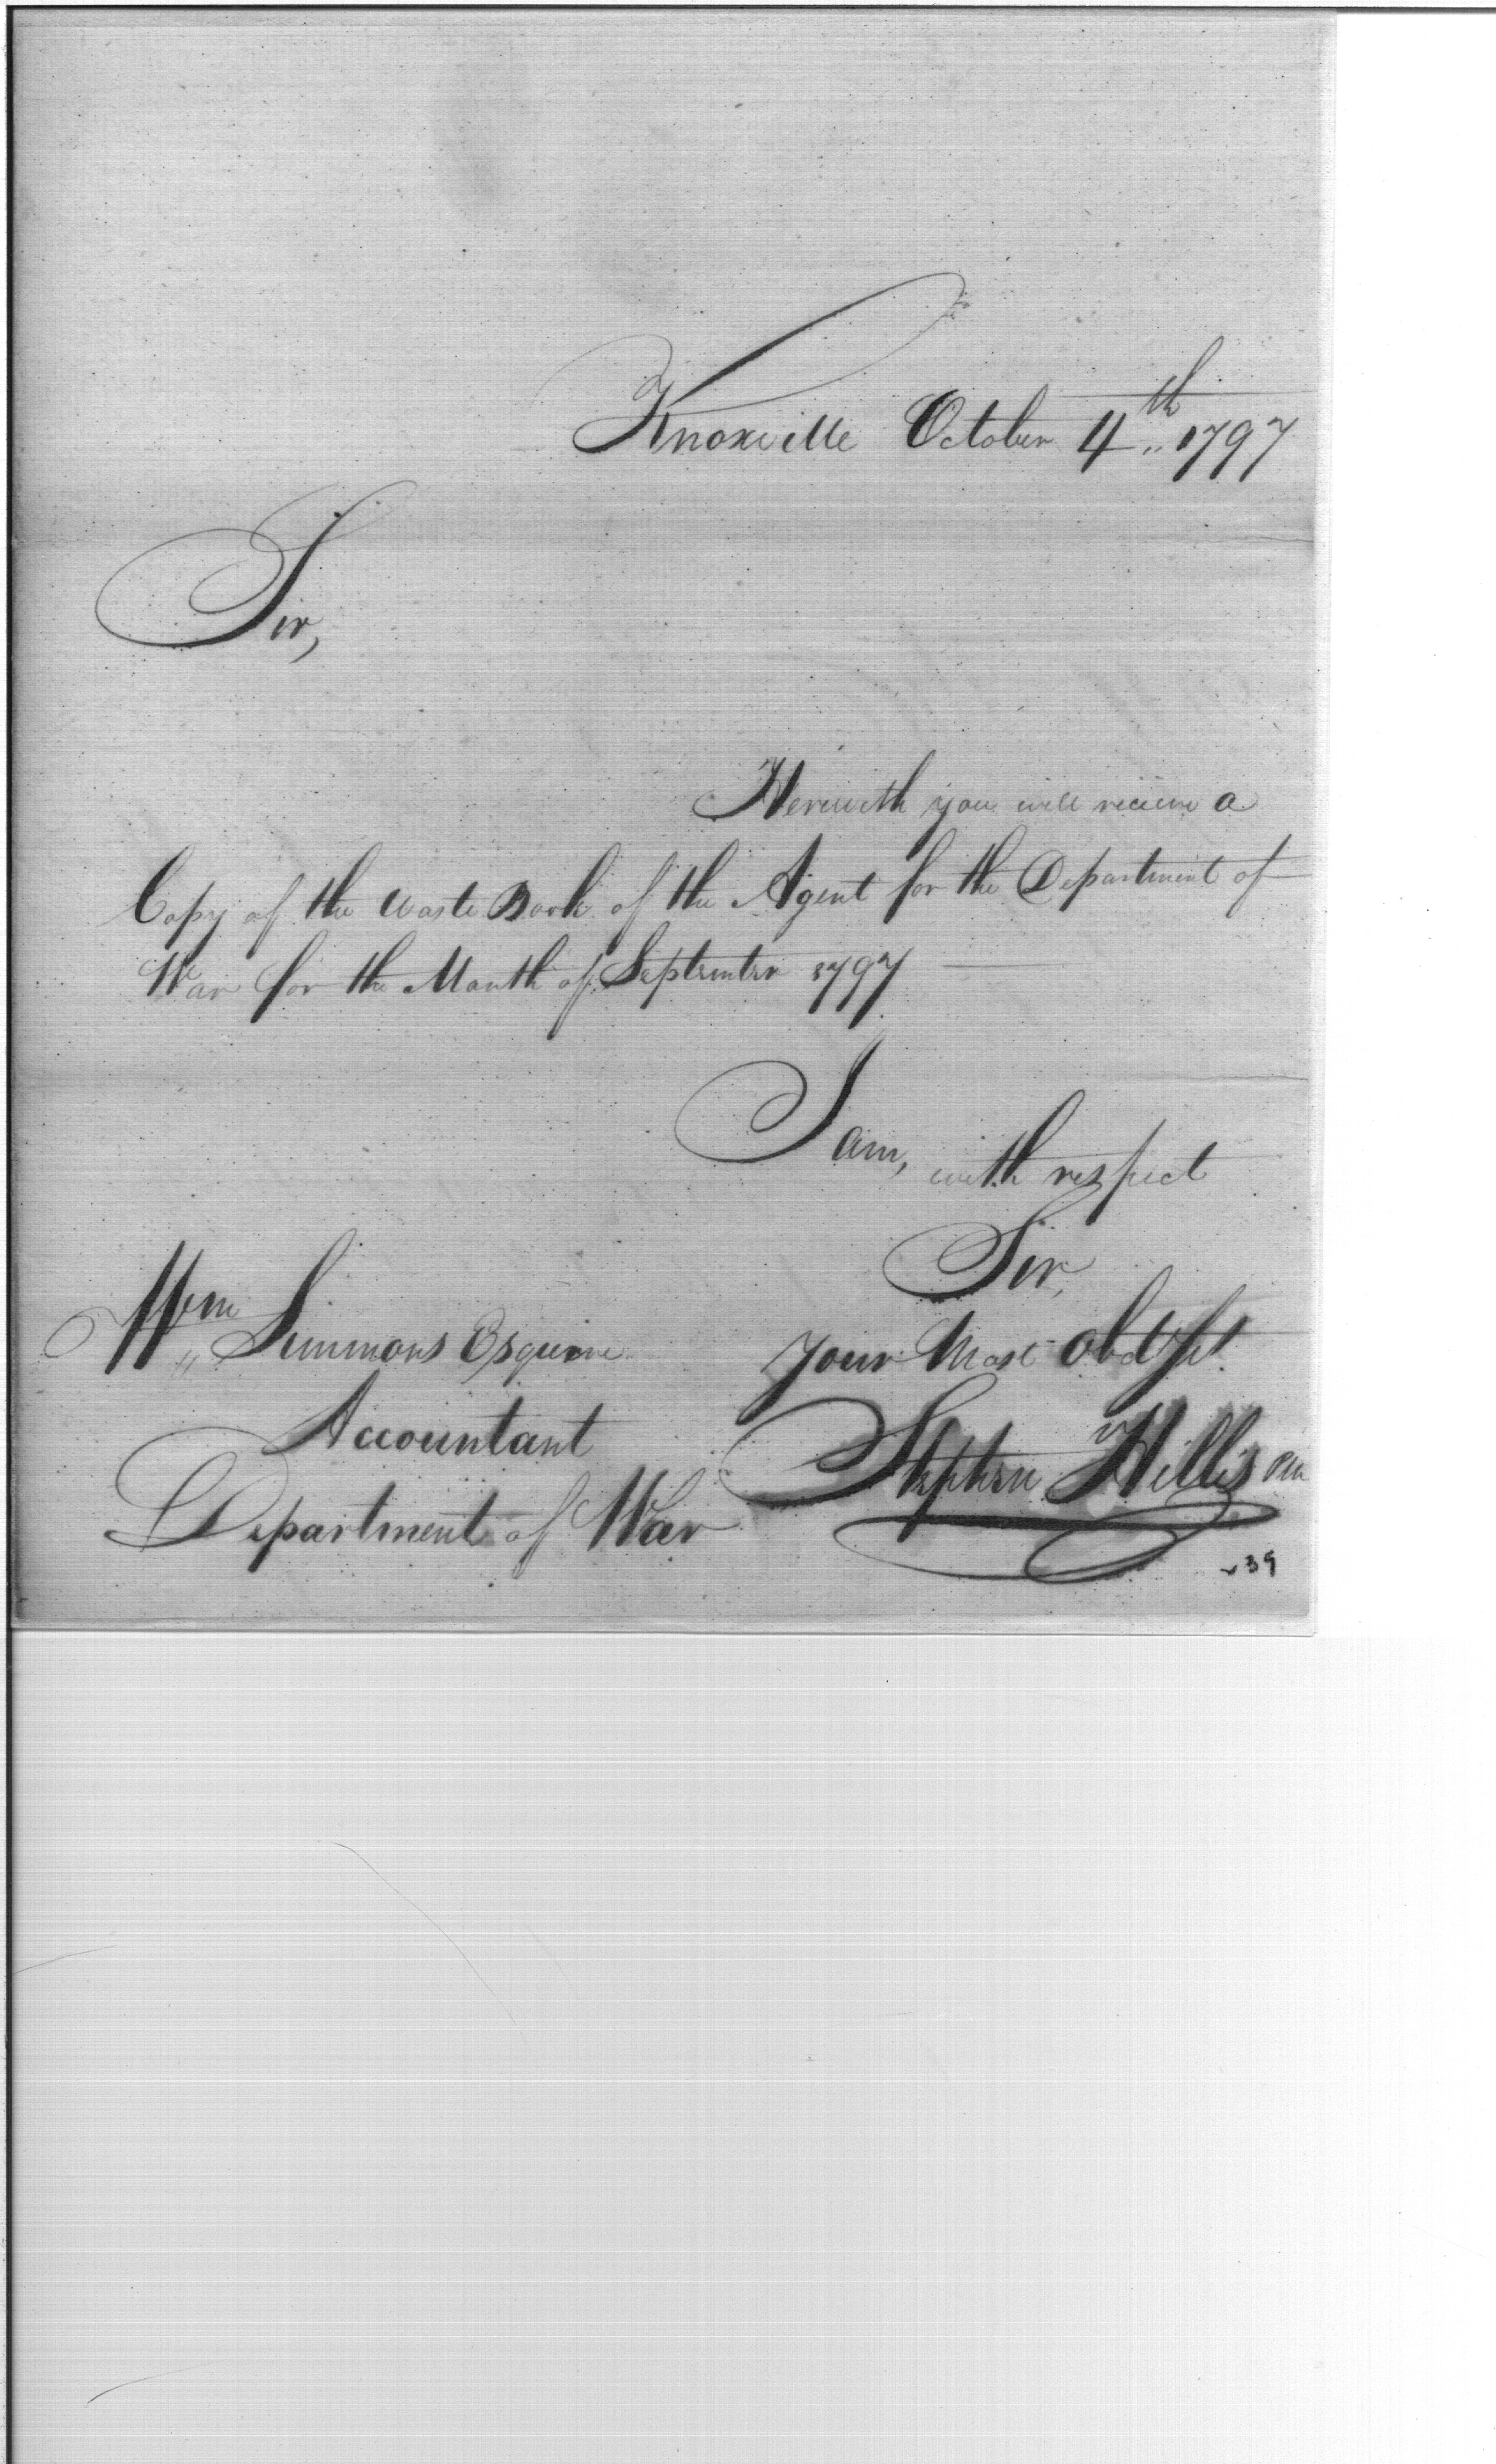 Knoxville October 4th 1797
Sir,
Herewith you will receive a
Copy of the Waste Book of the Agent for the Department of
War for the Month of September 1797
I am, with respect
Sir,
Wm Simmons Esquire
Your Most Obdt St
Accountant
Stephen Hillis
Department of War
39